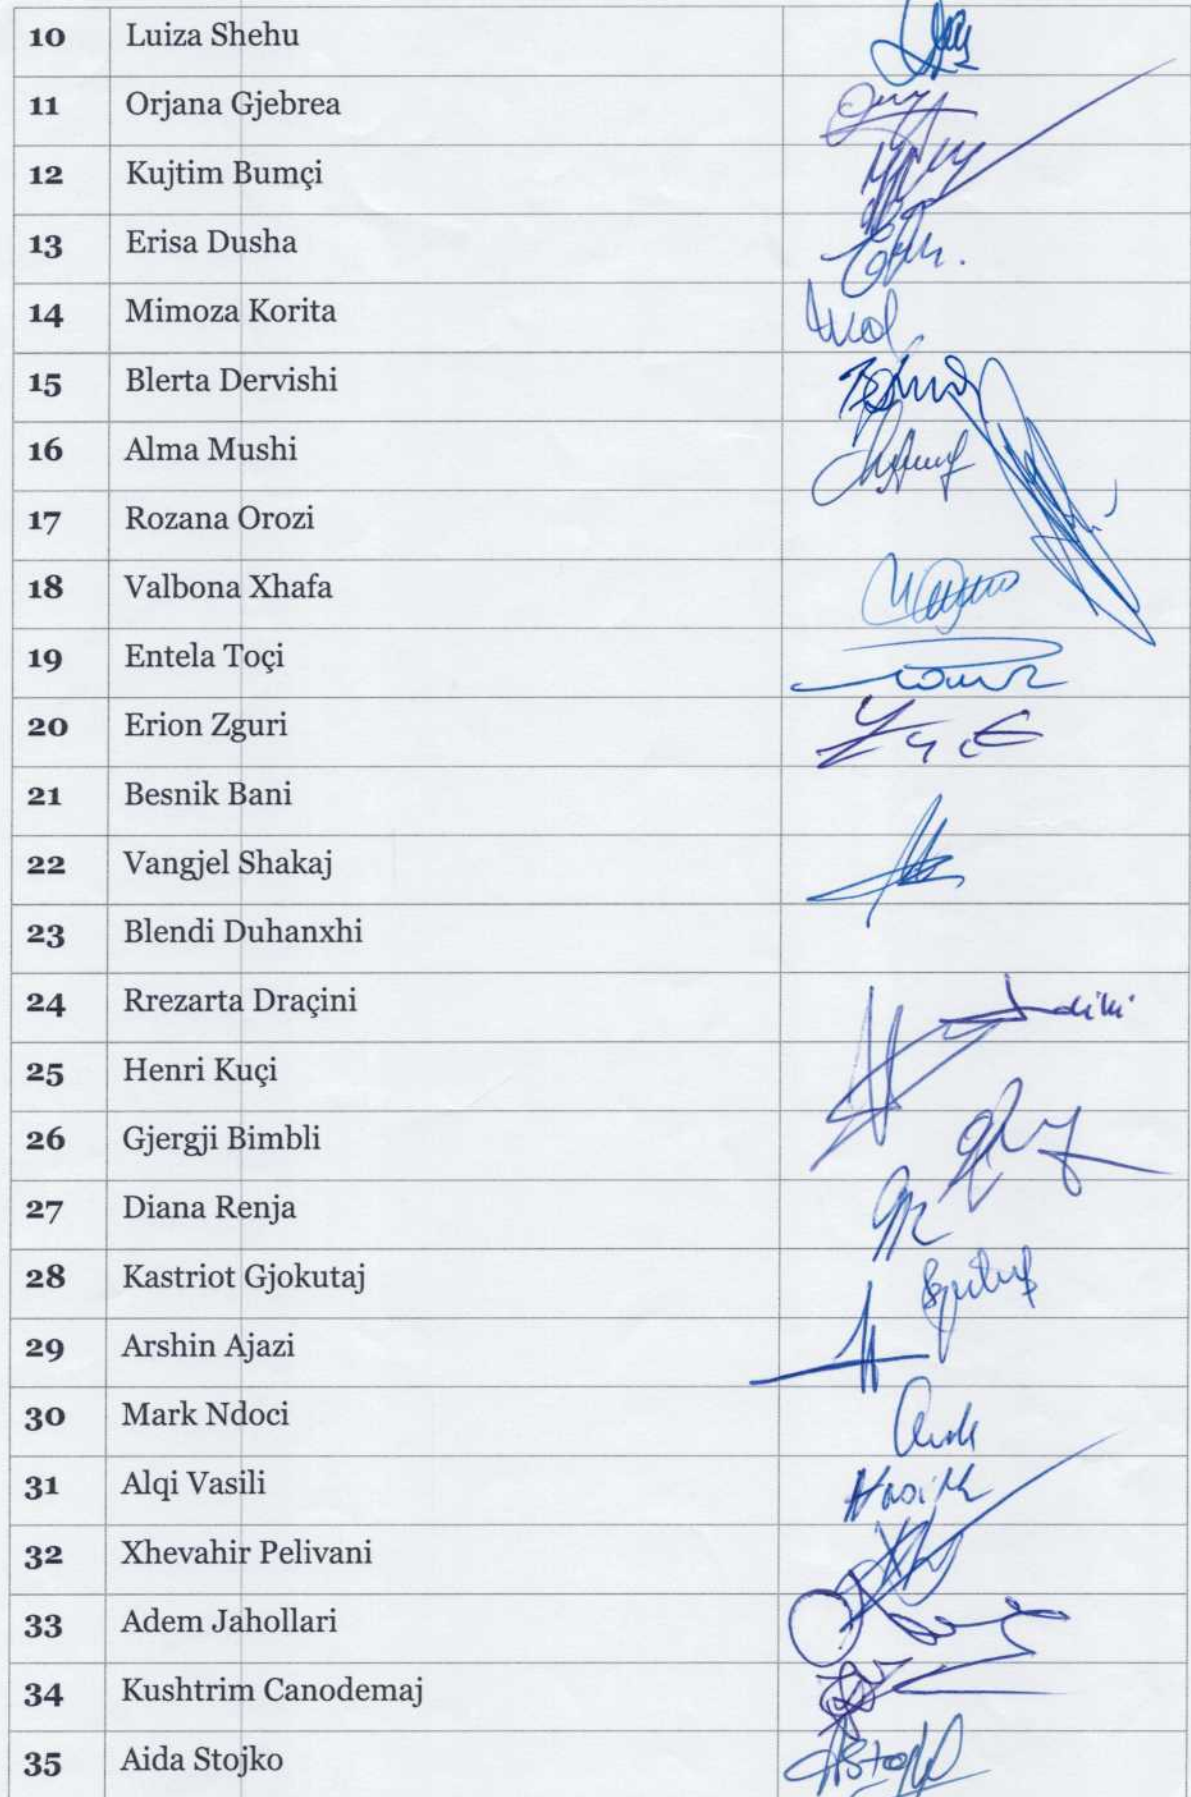 10 Luiza Shehu
11 Orjana Gjebrea
12 Kujtim Bumçi
13 Erisa Dusha
14 Mimoza Korita
15 Blerta Dervishi
16 Alma Mushi
17 Rozana Orozi
18 Valbona Xhafa
19 Entela Toçi
20 Erion Zguri
21 Besnik Bani
22 Vangjel Shakaj
23 Blendi Duhanxhi
24 Rrezarta Draçini
25 Henri Kuçi
26 Gjergji Bimbli
27 Diana Renja
28 Kastriot Gjokutaj
29 Arshin Ajazi
30 Mark Ndoci
31 Alqi Vasili
32 Xhevahir Pelivani
33 Adem Jahollari
34 Kushtrim Canodemaj
35 Aida Stojko